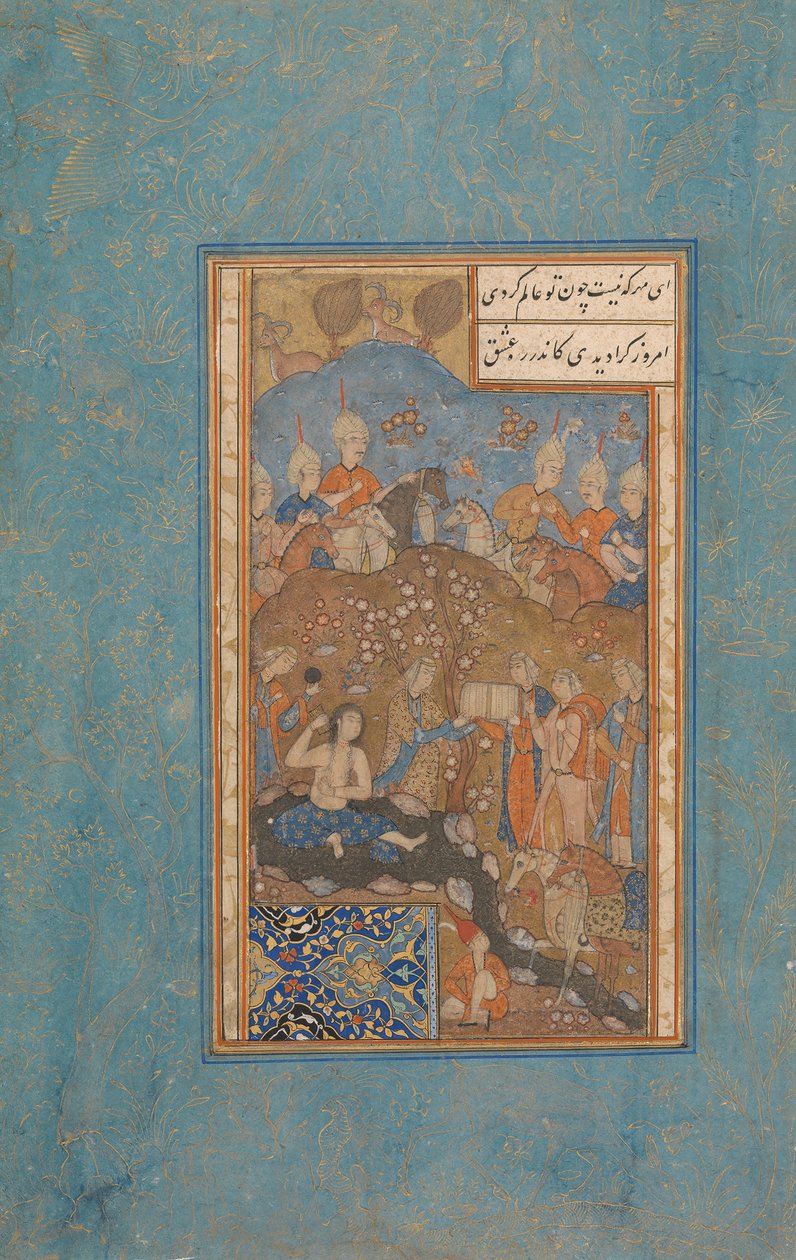 ای مه که نیست چون تو عالم کردی
امروز کرا دیدی کاندر ره عشق